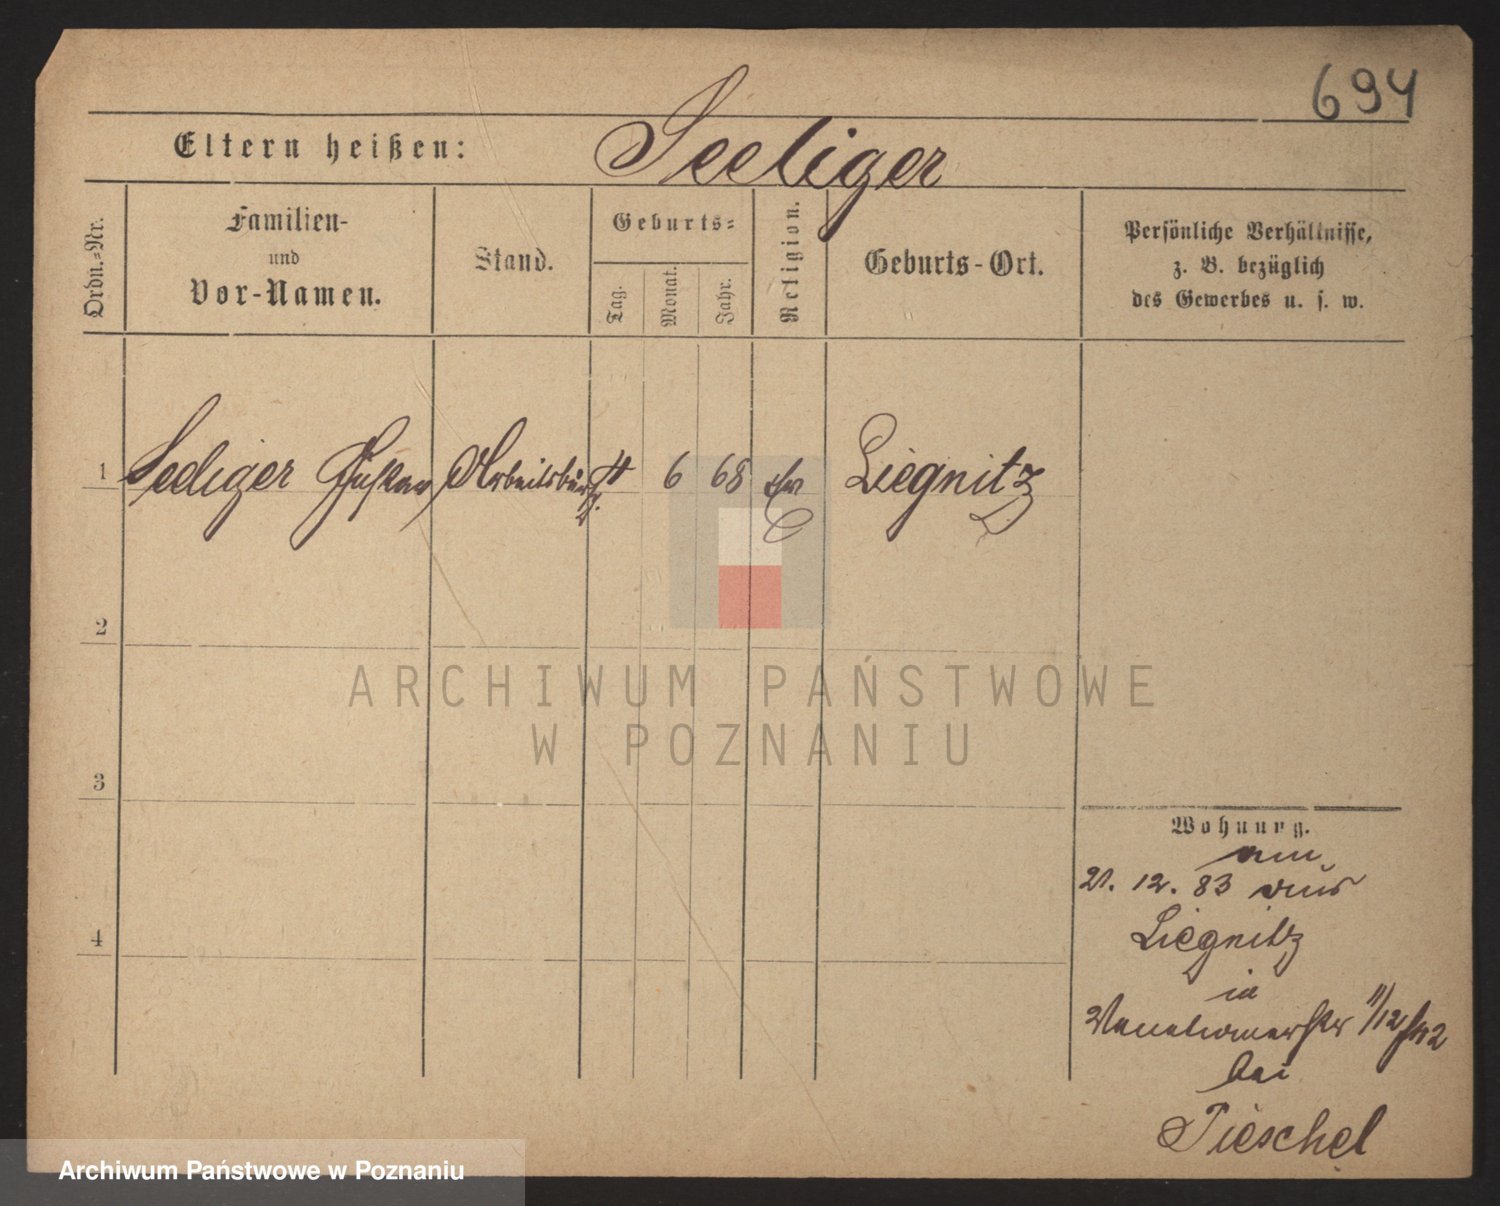 694
Eltern heißen: Seeliger
Ordn.-Nr.
Familien-
und
Vor-Namen.
Stand.
Geburts-
Tag.
Monat.
Jahr.
Religion.
Geburts-Ort.
Persönliche Verhältnisse,
z. B. bezüglich
des Gewerbes u. s. w.
1 Seeliger Gustav 6 68 Ev Liegnitz
2
3
4
Wohnung.
am
21. 12. 83 aus
Liegnitz
in
11/12
bei
Pieschel
ARCHIWUM PAŃSTWOWE
W POZNANIU
Archiwum Państwowe w Poznaniu